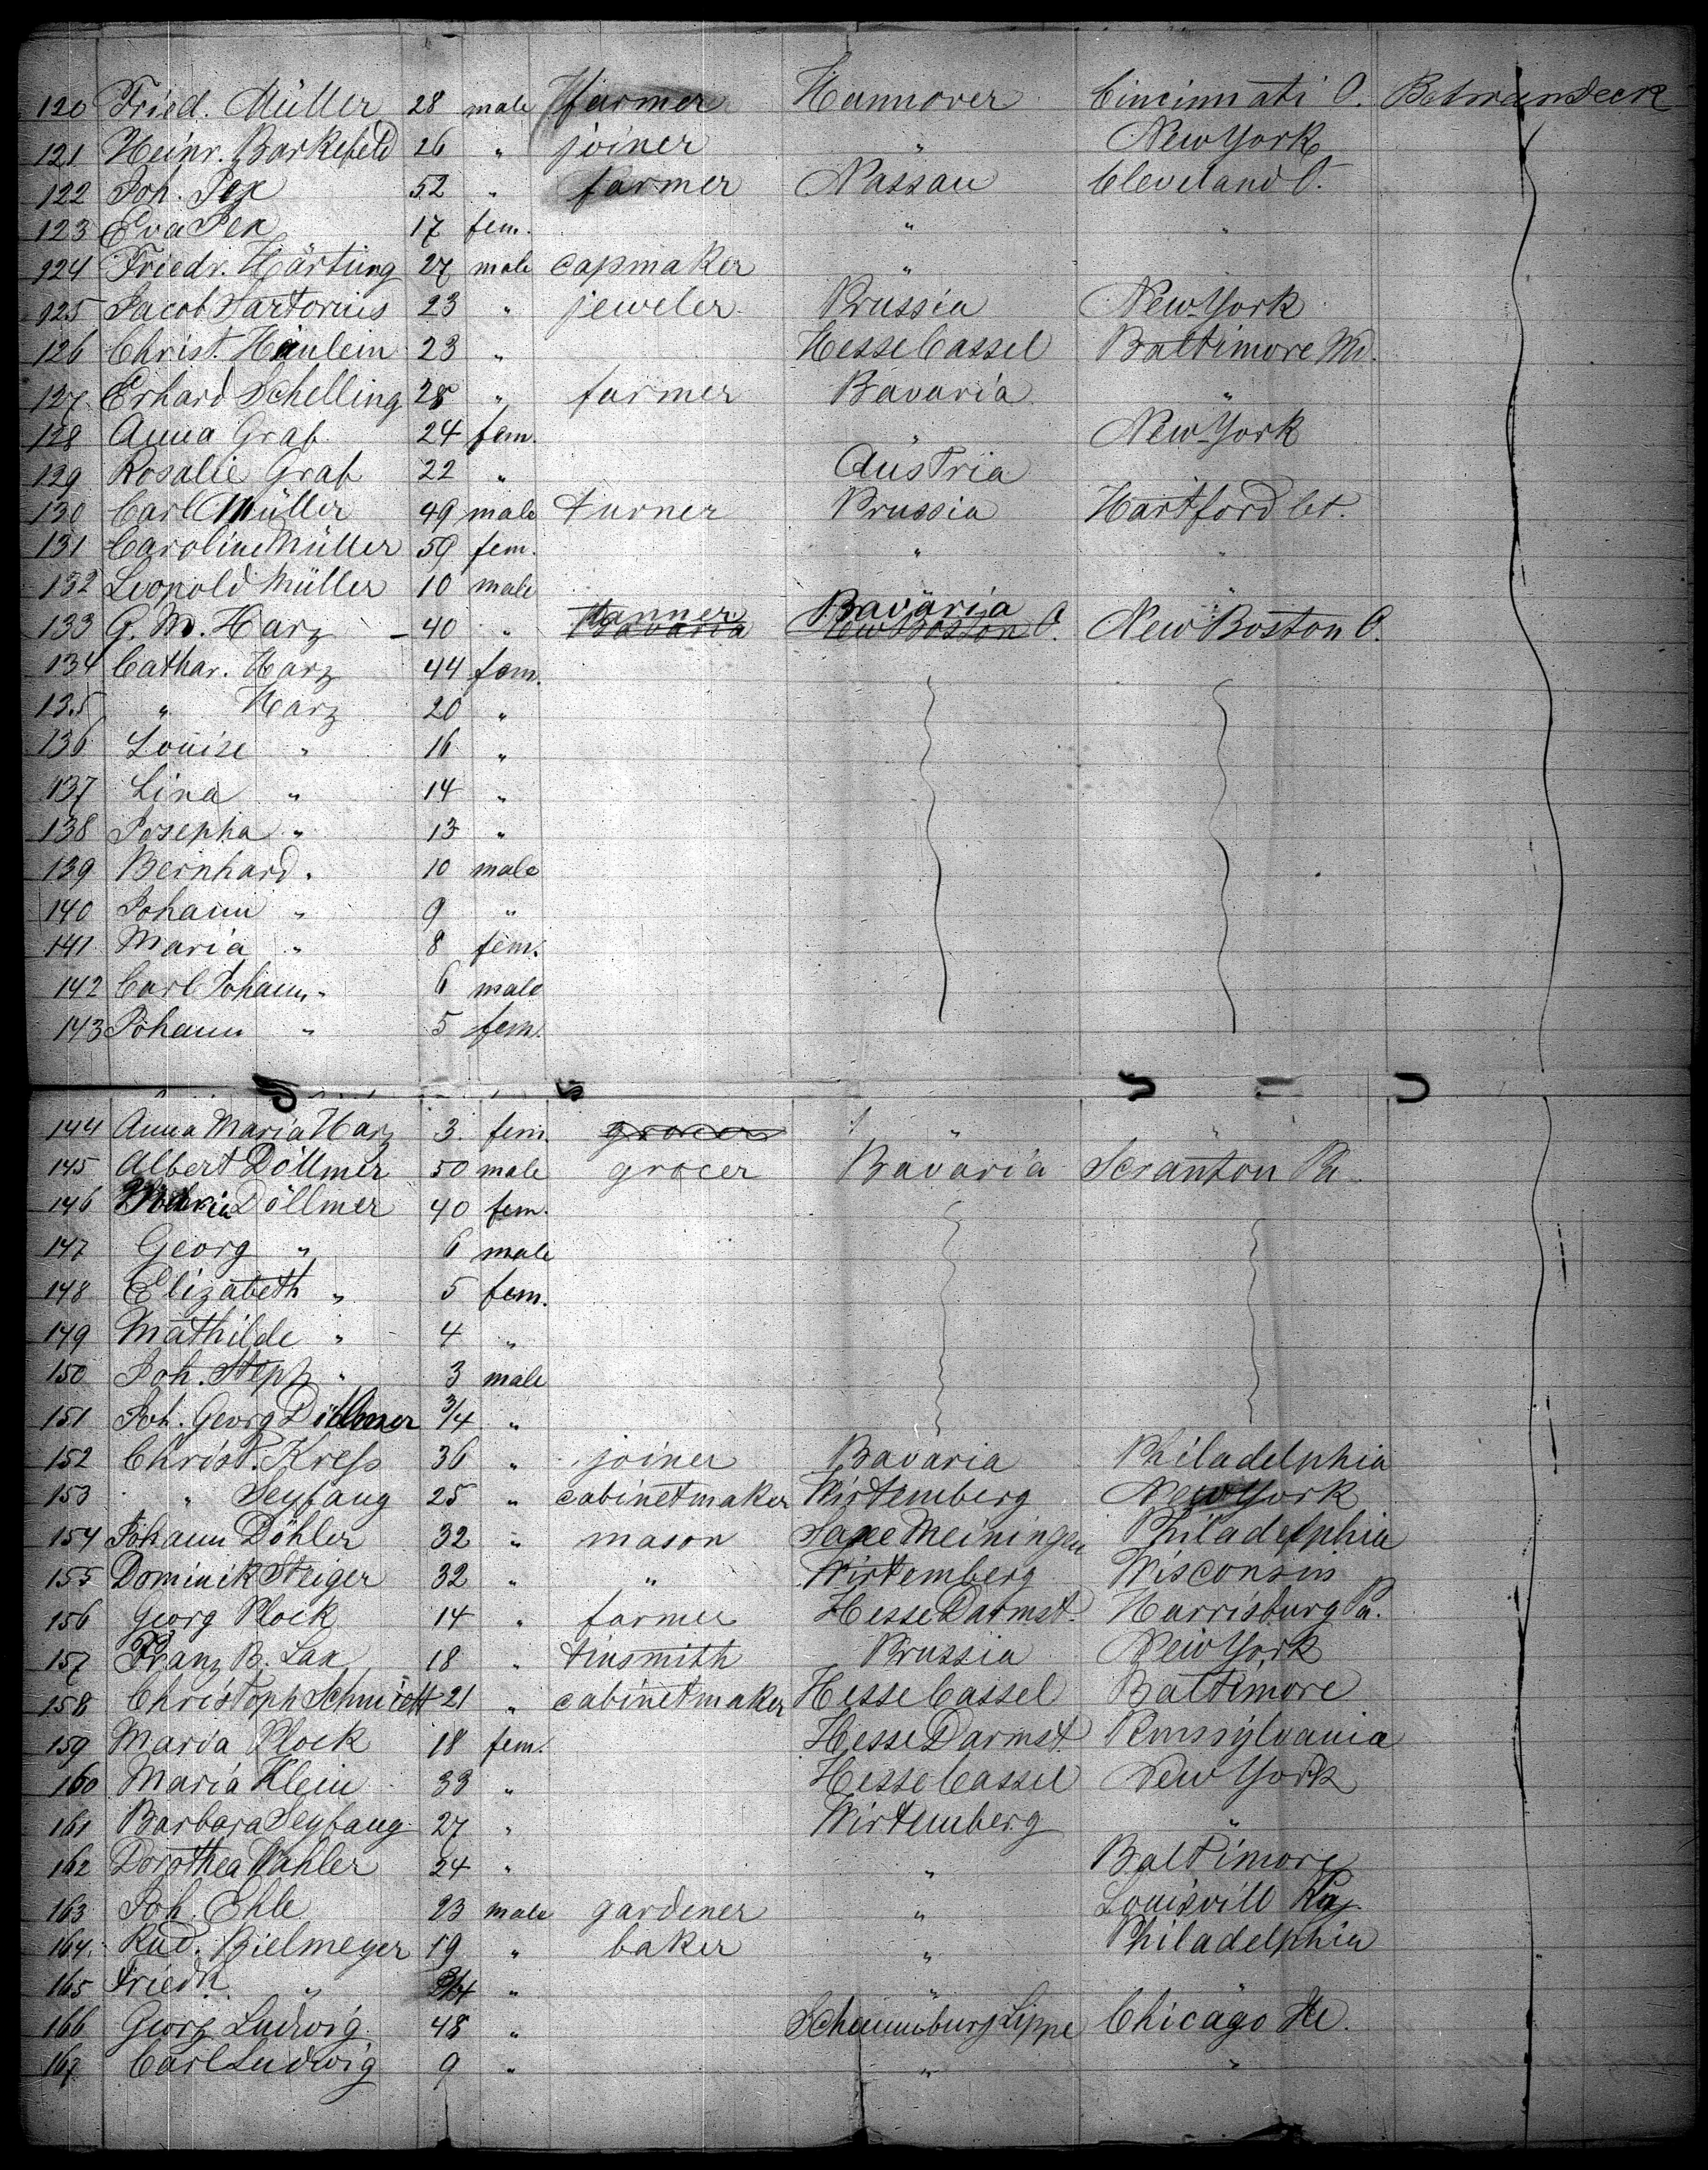 120 Fried. Müller 28 male farmer Hannover Cincinnati O. Betweendeck
121 Heinr. Barkefeld 26 " joiner " New York
122 Joh. Pex 52 " farmer Nassau Cleveland O.
123 Eva Pex 17 fem. " "
124 Friedr. Härtung 27 male capmaker "
125 Jacob Sartorius 23 " jeweler Prussia New York
126 Christ. Häulein 23 " Hesse Cassel Baltimore Md.
127 Erhard Schelling 28 " farmer Bavaria "
128 Anna Graf 24 fem. " New York
129 Rosalie Graf 22 " Austria
130 Carl Müller 49 male turner Prussia Hartford Ct.
131 Caroline Müller 59 fem. " "
132 Leopold Müller 10 male " "
133 G. M. Harz 40 " Bavaria New Boston O. New Boston O.
tanner Bavaria
134 Cathar. Harz 44 fem.
135 " Harz 20 "
136 Louise " 16 "
137 Lina " 14 "
138 Josepha " 13 "
139 Bernhard " 10 male
140 Johann " 9 "
141 Maria " 8 fem.
142 Carl Johann " 6 male
143 Johann " 5 fem.
144 Anna Maria Harz 3 fem. grocer " "
145 Albert Döllmer 50 male grocer Bavaria Scranton Pa.
146 Döllmer 40 fem.
147 Georg " 6 male
148 Elizabeth " 5 fem.
149 Mathilde " 4 "
150 Joh. Steph " 3 male
151 Joh. Georg Döllmer 3/4 "
152 Christ. Kress 36 " joiner Bavaria Philadelphia
153 " Seyfang 25 " cabinetmaker Wirtemberg New York
154 Johann Döhler 32 " mason Saxe Meiningen Philadelphia
155 Dominik Steiger 32 " " Wirtemberg Wisconsin
156 Georg Plock 14 " farmer Hesse Darmst. Harrisburg Pa.
157 Franz B. Lax 18 " tinsmith Prussia New York
158 Christoph Schmidt 21 " cabinetmaker Hesse Cassel Baltimore
159 Maria Plock 18 fem. Hesse Darmst. Pennsylvania
160 Maria Klein 33 " Hesse Cassel New York
161 Barbara Seyfang 27 " Wirtemberg "
162 Dorothea Wahler 24 " " Baltimore
163 Joh. Ehle 23 male gardener " Louisvill Ky.
164 Rud. Bielmeyer 19 " baker " Philadelphia
165 Friedr. " " " "
166 Georg Ludwig 48 " Schaumburg Lippe Chicago Ill.
167 Carl Ludwig 9 " " "